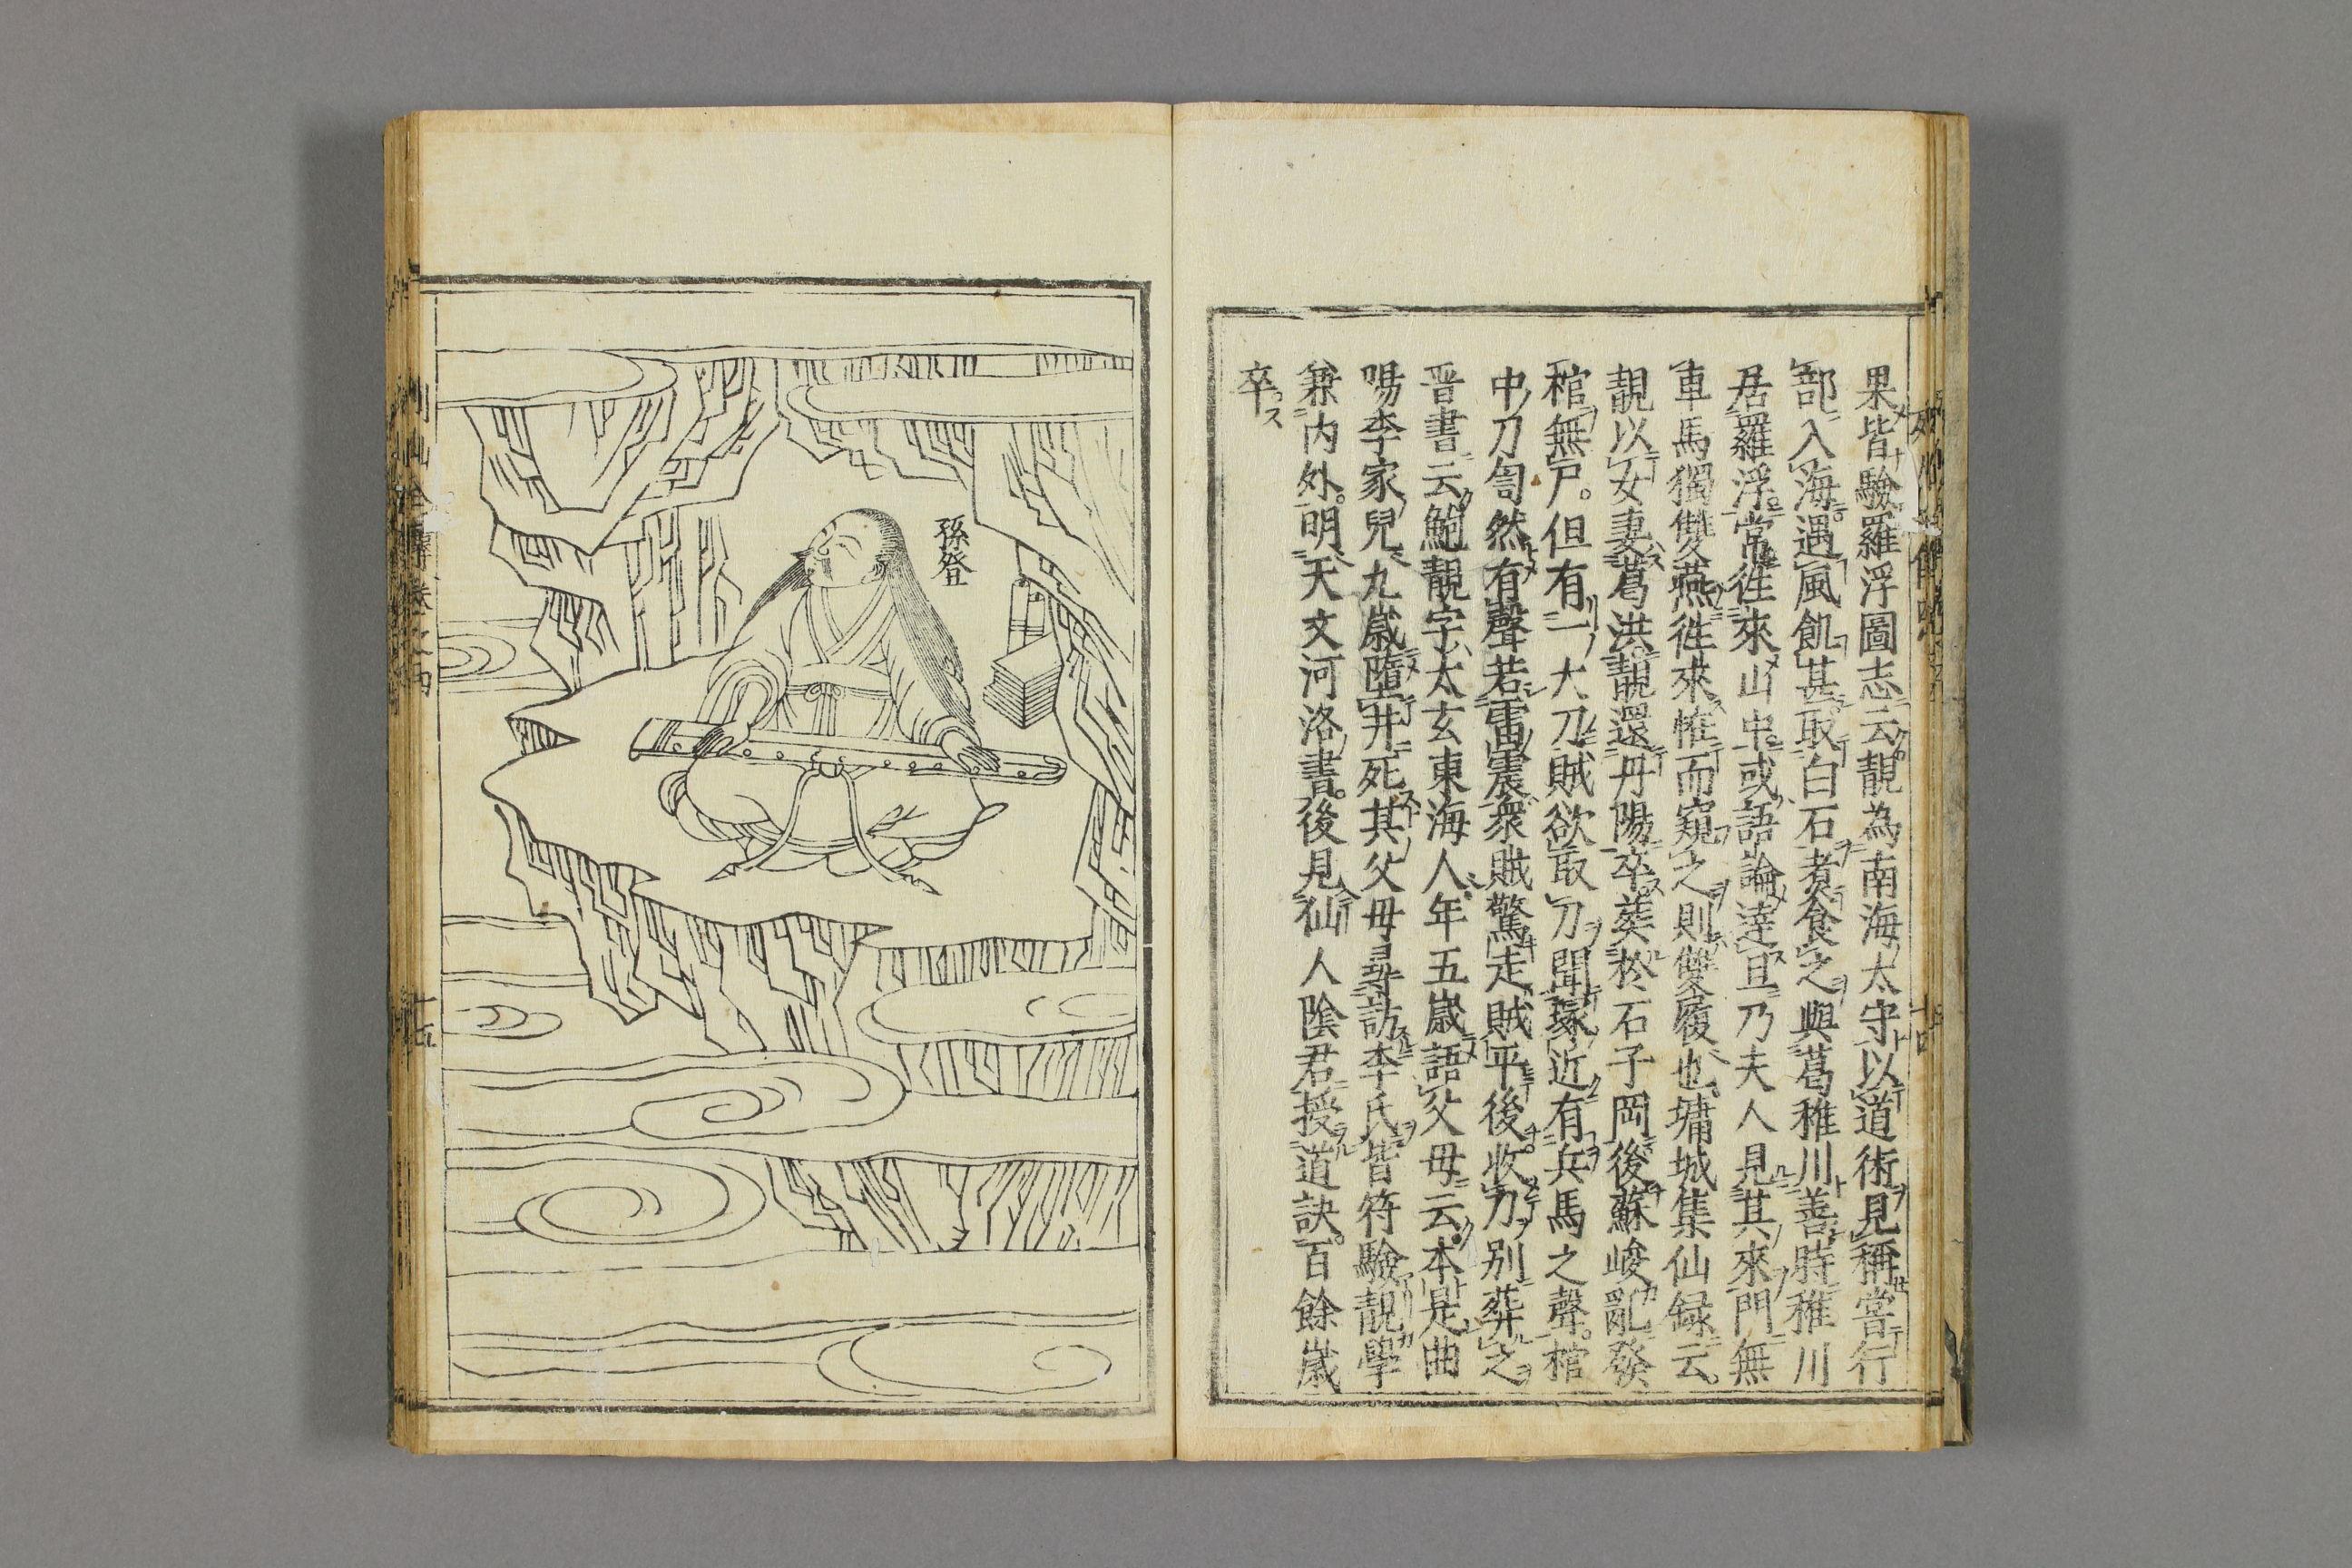 果皆驗羅浮圖志云靚為南海太守以道術見稱嘗行
部入海遇風飢甚取白石煮食之與葛稚川善時稚川
居羅浮常徃來山中或語論達旦乃夫人見其來門無
車馬獨雙燕徃來恠而窺之則雙履也墉城集仙録云
靚以女妻葛洪靚還丹陽卒葬於石子岡後蘇峻亂發
棺無尸但有一大刀賊欲取刀聞塚近有兵馬之聲棺
中刀訇然有聲若雷震衆賊驚走賊平後收刀別葬之
晋書云鮑靚字太玄東海人年五歳語父母云本是曲
陽李家兒九歳墮井死其父母尋訪李氏皆符驗靚學
兼内外明天文河洛書後見仙人陰君授道訣百餘歳
卒ス
孫登
列仙全傳卷之四
十五